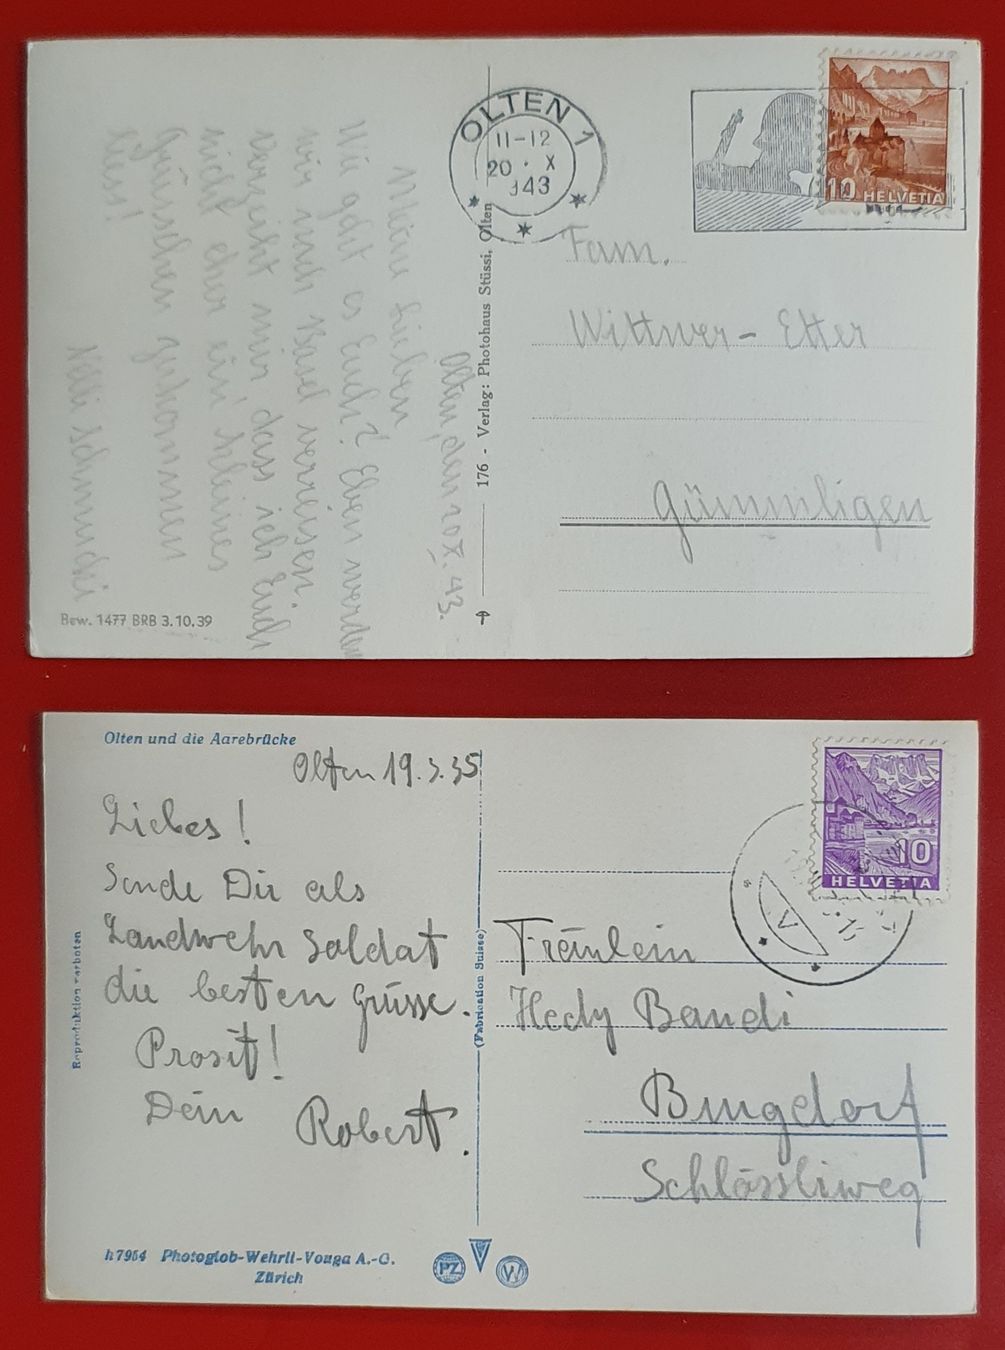 OLTEN 1
11-12
20 · X
943
10 HELVETIA
Fam.
Wittwer-Etter
Gümmligen
176 - Verlag: Photohaus Stüssi, Olten
Olten, den 20X.43.
Meine Lieben
Wie geht es Euch? Eben werden
wir nach Basel verreisen.
Verzeiht mir, dass ich Euch
nicht eher ein kleines
Grüsschen zukommen
liess!
Nelli Schmucki
Bew. 1477 BRB 3.10.39
Olten und die Aarebrücke
Olten 19.3.35
Liebes!
Sende Dir als
Landwehr Soldat
die besten Grüsse.
Prosit!
Dein Robert.
Reproduktion verboten
(Fabrication Suisse)
10
HELVETIA
V
Fräulein
Hedy Bandi
Burgdorf
Schlössliweg
h7954 Photoglob-Wehrli-Vouga A.-G.
Zürich
PZ V W